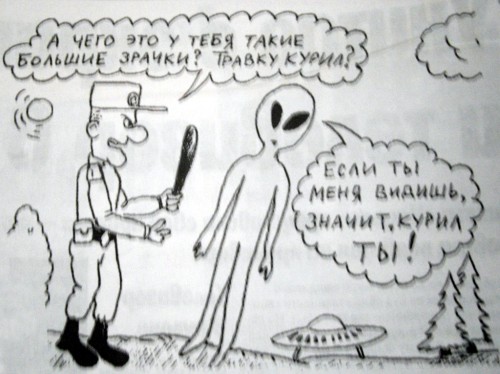 А ЧЕГО ЭТО У ТЕБЯ ТАКИЕ
БОЛЬШИЕ ЗРАЧКИ? ТРАВКУ КУРИЛ?
ЕСЛИ ТЫ
МЕНЯ ВИДИШЬ,
ЗНАЧИТ, КУРИЛ
ТЫ!